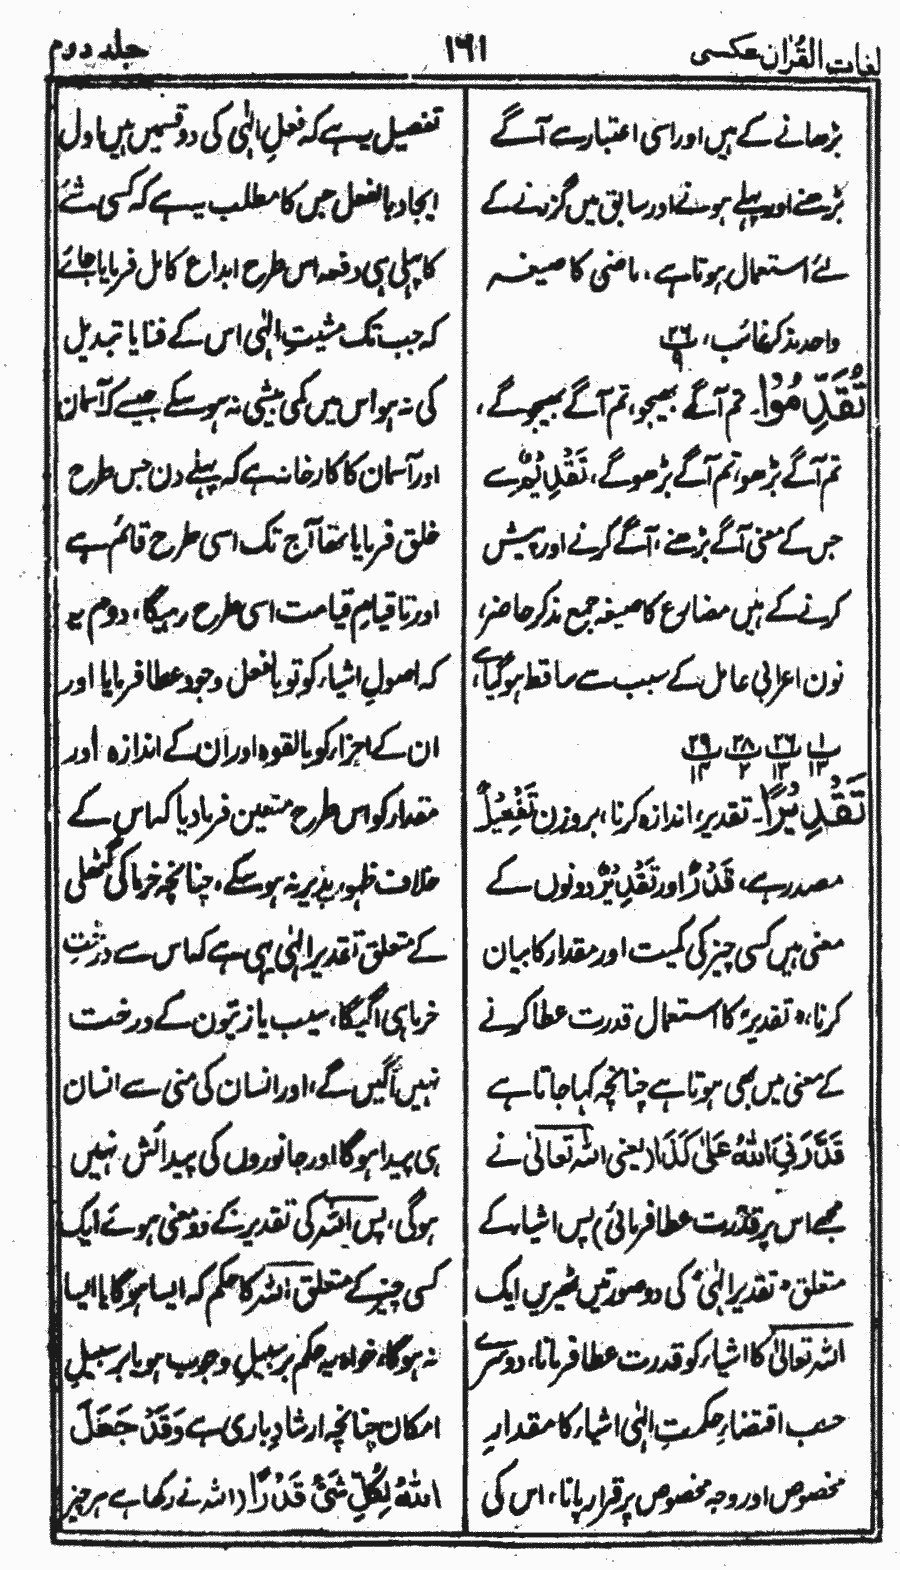 لغات القرآن عکسی
۱۶۱
جلد دوم
بڑھانے کے ہیں اور اسی اعتبار سے آگے
بڑھنے اور پہلے ہونے اور سابق میں گزرنے کے
لئے استعمال ہوتا ہے ، ماضی کا صیغہ
واحد مذکر غائب ، ۲۶ / ۹
تُقَدِّمُوْا۔ تم آگے بھیجو ، تم آگے بھیجوگے ،
تم آگے بڑھو ، تم آگے بڑھوگے ، تَقْدِیْمٌ سے
جس کے معنی آگے بڑھنے ، آگے کرنے اور پیش
کرنے کے ہیں مضارع کا صیغہ جمع مذکر حاضر ،
نون اعرابی عامل کے سبب سے ساقط ہوگیا ہے ،
۱ / ۱۳ ۲۶ / ۱۳ ۲۸ / ۲ ۲۹ / ۱۴
تَقْدِیْرًا۔ تقدیر ، اندازہ کرنا ، بروزن تَفْعِیْلٌ
مصدر ہے ، قَدْرٌ اور تَقْدِیْرٌ دونوں کے
معنی ہیں کسی چیز کی کمیت اور مقدار کا بیان
کرنا ، «تقدیر» کا استعمال قدرت عطا کرنے
کے معنی میں بھی ہوتا ہے چنانچہ کہا جاتا ہے
قَدَّرَنِیَ اللّٰہُ عَلٰی کَذَا (یعنی اللہ تعالیٰ نے
مجھے اس پر قدرت عطا فرمائی) پس اشیاء کے
متعلق «تقدیر الٰہی» کی دو صورتیں ٹھیریں ایک
اللہ تعالیٰ کا اشیاء کو قدرت عطا فرمانا ، دوسرے
حسب اقتضاءِ حکمتِ الٰہی اشیاء کا مقدارِ
مخصوص اور وجہ مخصوص پر قرار پانا ، اس کی
تفصیل یہ ہے کہ فعلِ الٰہی کی دو قسمیں ہیں اول
ایجاد بالفعل جس کا مطلب یہ ہے کہ کسی شئے
کا پہلی ہی دفعہ اس طرح ابداع کامل فرمایا جائے
کہ جب تک مشیتِ الٰہی اس کے فنا یا تبدیل
کی نہ ہو اس میں کمی بیشی نہ ہوسکے جیسے کہ آسمان
اور آسمان کا کارخانہ ہے کہ پہلے دن جس طرح
خلق فرمایا تھا آج تک اسی طرح قائم ہے
اور تا قیامِ قیامت اسی طرح رہیگا ، دوم یہ
کہ اصولِ اشیاء کو تو بالفعل وجود عطا فرمایا اور
ان کے اجزاء کو بالقوہ اور ان کے اندازہ اور
مقدار کو اس طرح متعین فرما دیا کہ اس کے
خلاف ظہور پذیر نہ ہوسکے ، چنانچہ خرما کی گٹھلی
کے متعلق تقدیر الٰہی یہی ہے کہ اس سے درختِ
خرما ہی اگیگا ، سیب یا زیتون کے درخت
نہیں اگیں گے ، اور انسان کی منی سے انسان
ہی پیدا ہوگا اور جانوروں کی پیدائش نہیں
ہوگی ، پس اللہ کی تقدیر کے دو معنی ہوئے ایک
کسی چیز کے متعلق اللہ کا حکم کہ ایسا ہوگا یا ایسا
نہ ہوگا ، خواہ یہ حکم بر سبیلِ وجوب ہو یا بر سبیلِ
امکان چنانچہ ارشادِ باری ہے وَقَدْ جَعَلَ
اللّٰہُ لِکُلِّ شَیْءٍ قَدْرًا (اللہ نے رکھا ہے ہر چیز